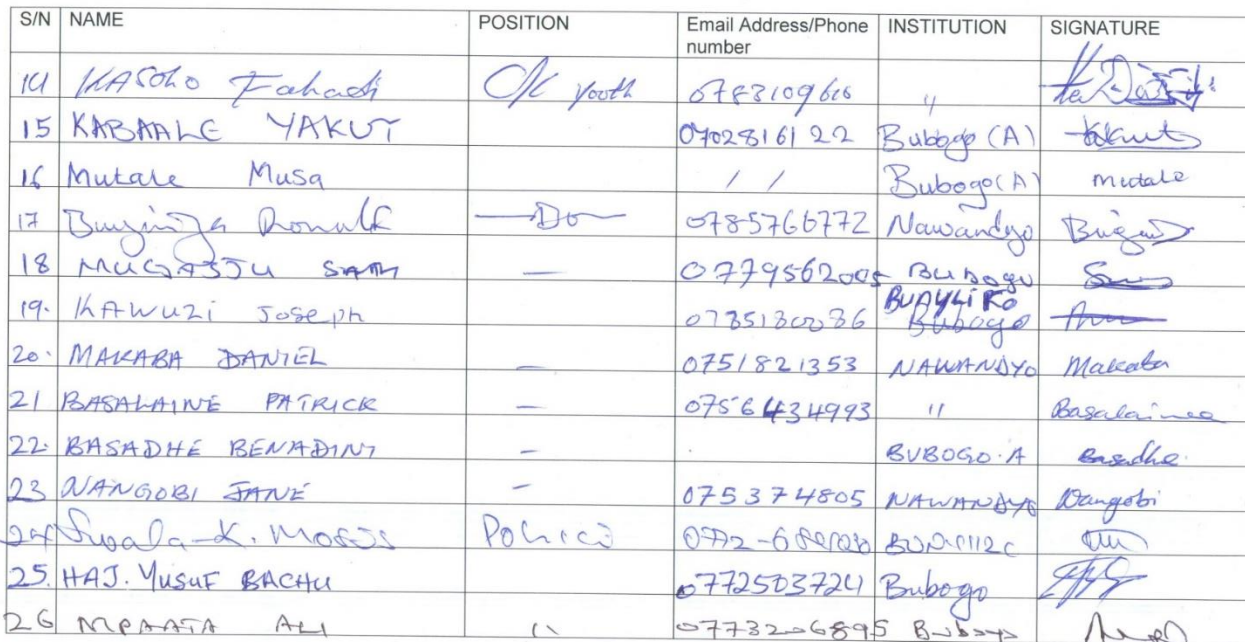 S/N NAME POSITION Email Address/Phone number INSTITUTION SIGNATURE
14 KASOHO Fahadi O/C Youth 0783109610 "
15 KABAALE YAKUT 0702816122 Bubogo (A) Yakut
16 Mutale Musa / / Bubogo (A) Mutale
17 Ronald Do 0785766772 Nawandyo
18 MUGASSU SAM — 0779562005 Bubogo
19. KAWUZI Joseph 0785130036 Bubogo
20. MAKABA DANIEL — 0751821353 NAWANDYO Makaba
21 BASALAINE PATRICK — 07564434993 " Basalaine
22. BASADHE BENADINI — BUBOGO.A Basadhe
23 NANGOBI JANE — 075374805 NAWANDYO Nangobi
24 K. Moses Police 0772-
25. HAJ. YUSUF BACHU 0772503724 Bubogo
26 MPAATA ALI " 0773206895 Bubogo